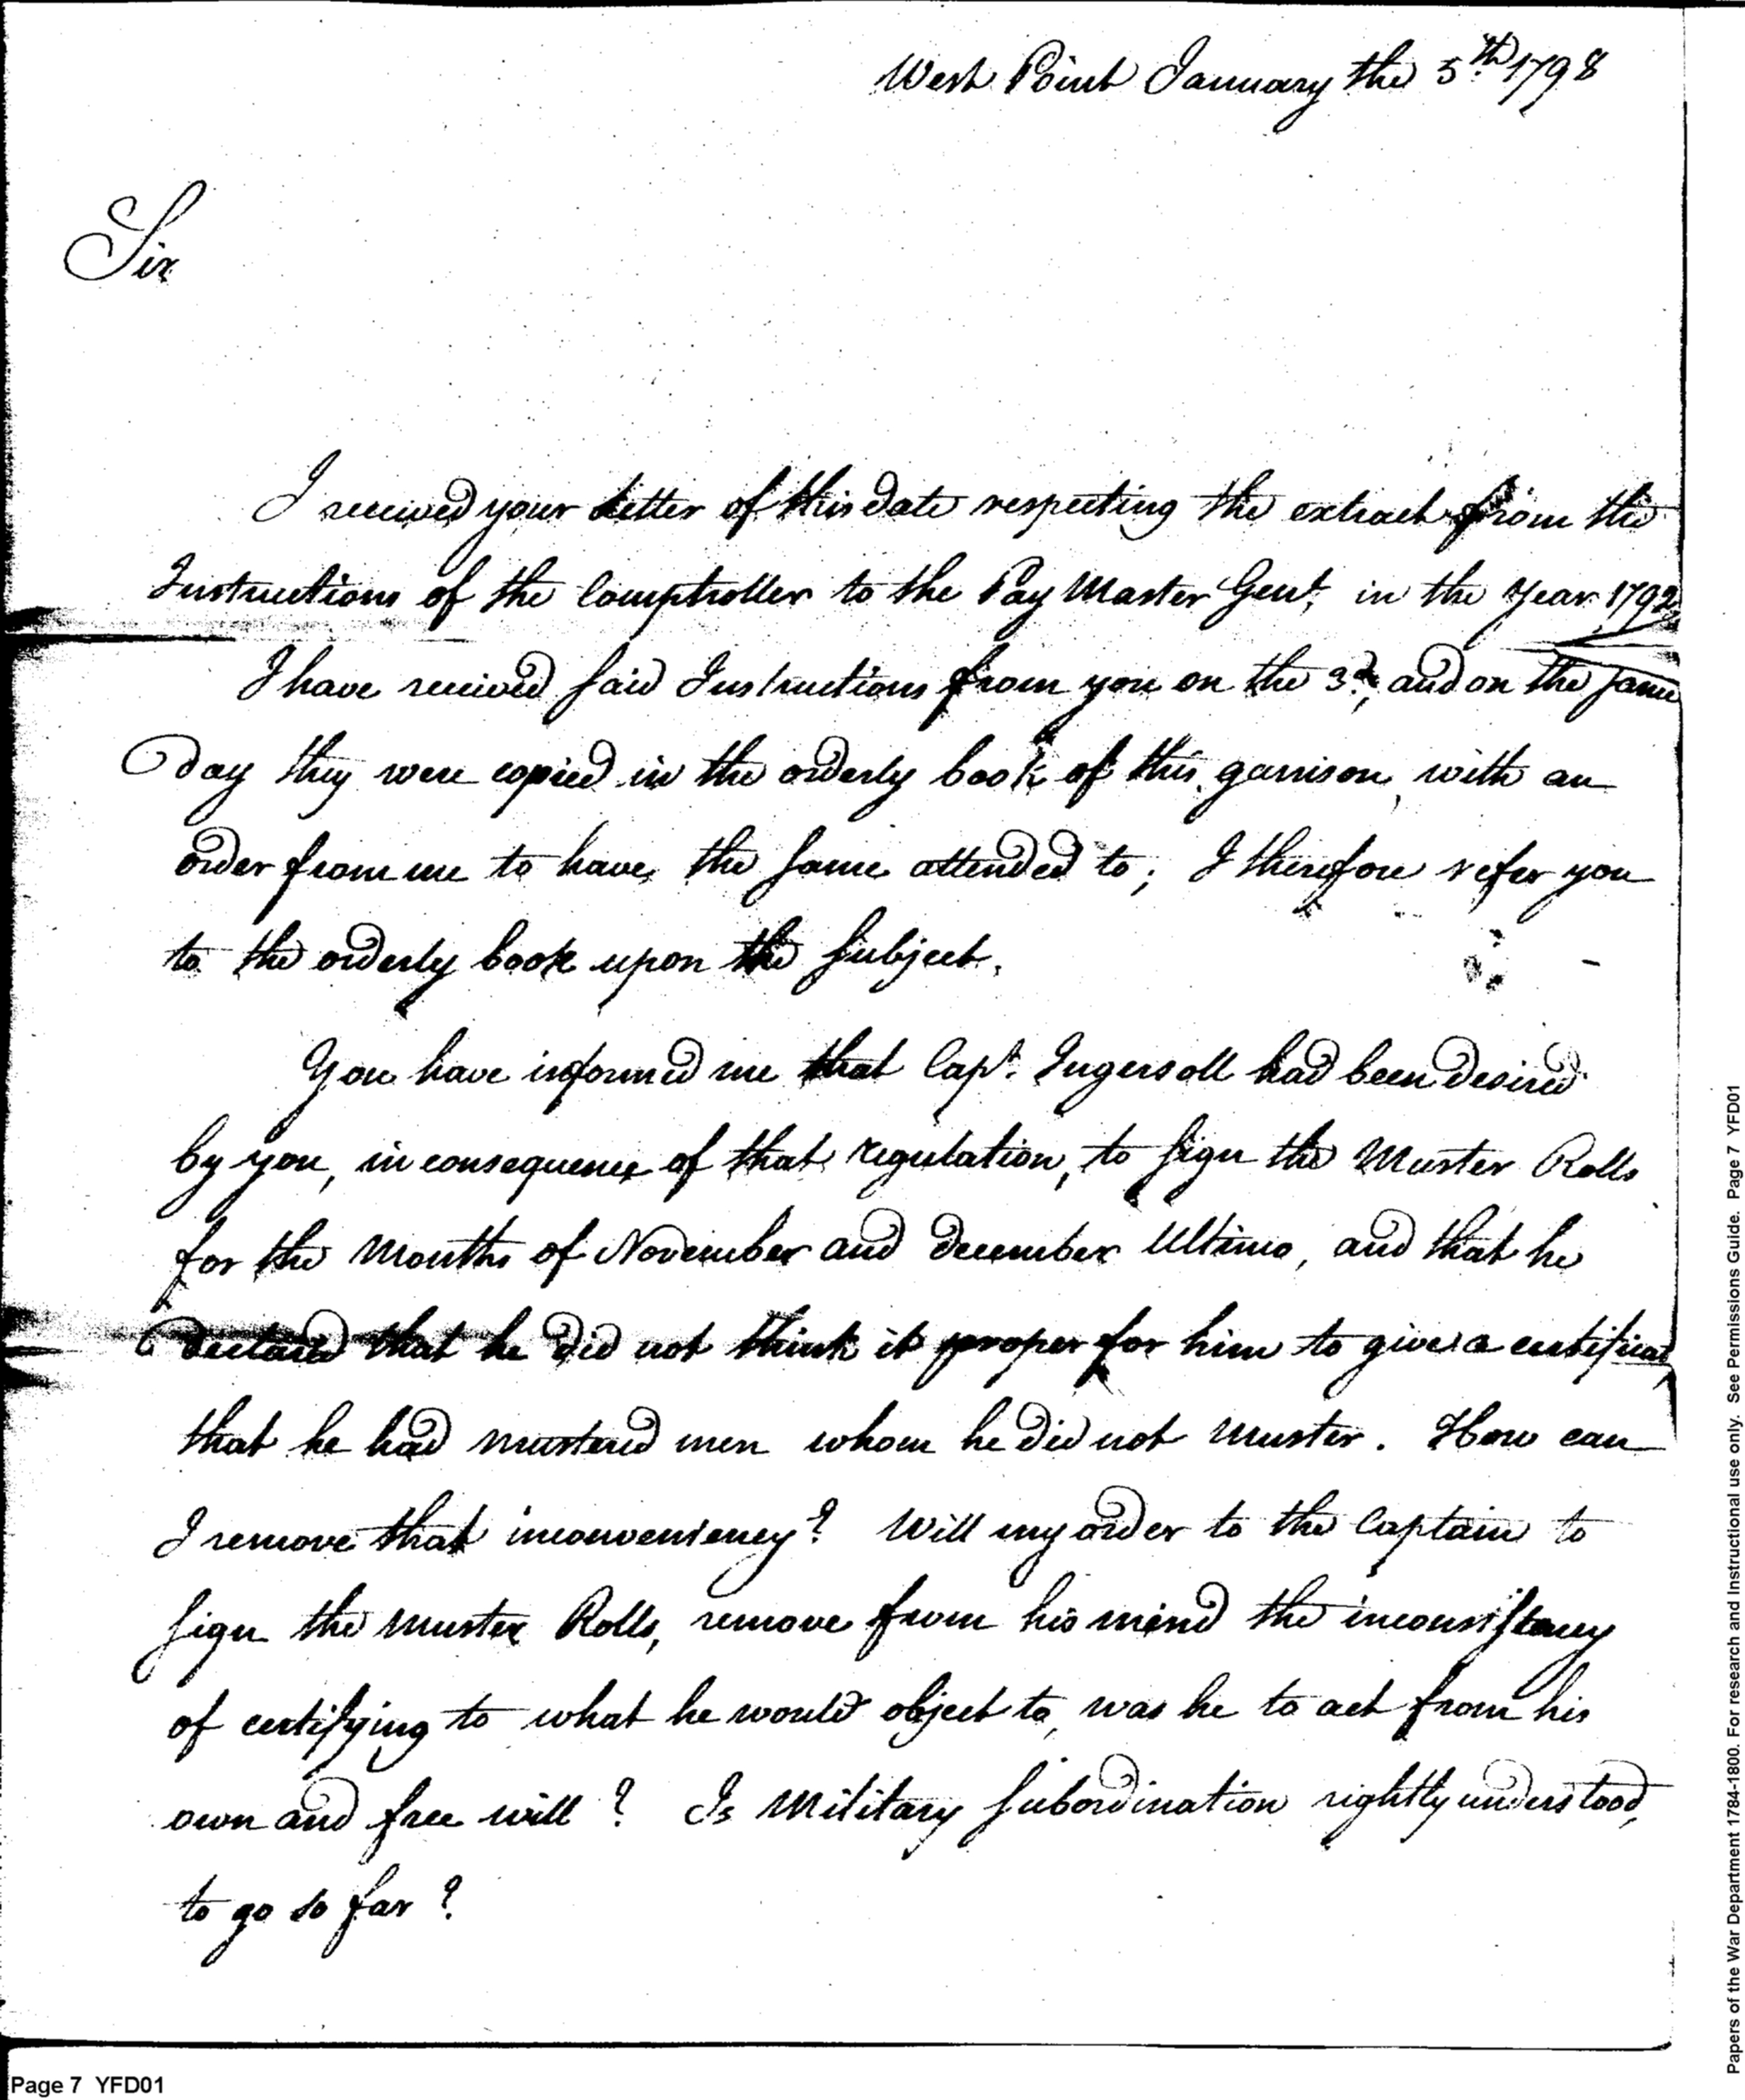 West Point January the 5th 1798
Sir
I received your Letter of this date respecting the extract from the
Instructions of the Comptroller to the Pay Master Genl, in the Year 1792
I have received said Instructions from you on the 3d, and on the same
Day they were copied in the orderly book of this garrison, with an
order from me to have, the same attended to; I therefore refer you
to the orderly book upon the subject.
You have informed me that Capt. Ingersoll had been desired
by you, in consequence of that regulation, to sign the Muster Rolls
for the Months of November and December Ultimo, and that he
Declared that he did not think it proper for him to give a certificat
that he had mustered men whom he did not muster. How can
I remove that inconveniency? Will my order to the Captain to
sign the Muster Rolls, remove from his mind the inconsistency
of certifying to what he would object to, was he to act from his
own and free will? Is Military subordination rightly understood,
to go so far?
Page 7 YFD01
Papers of the War Department 1784-1800. For research and Instructional use only. See Permissions Guide. Page 7 YFD01